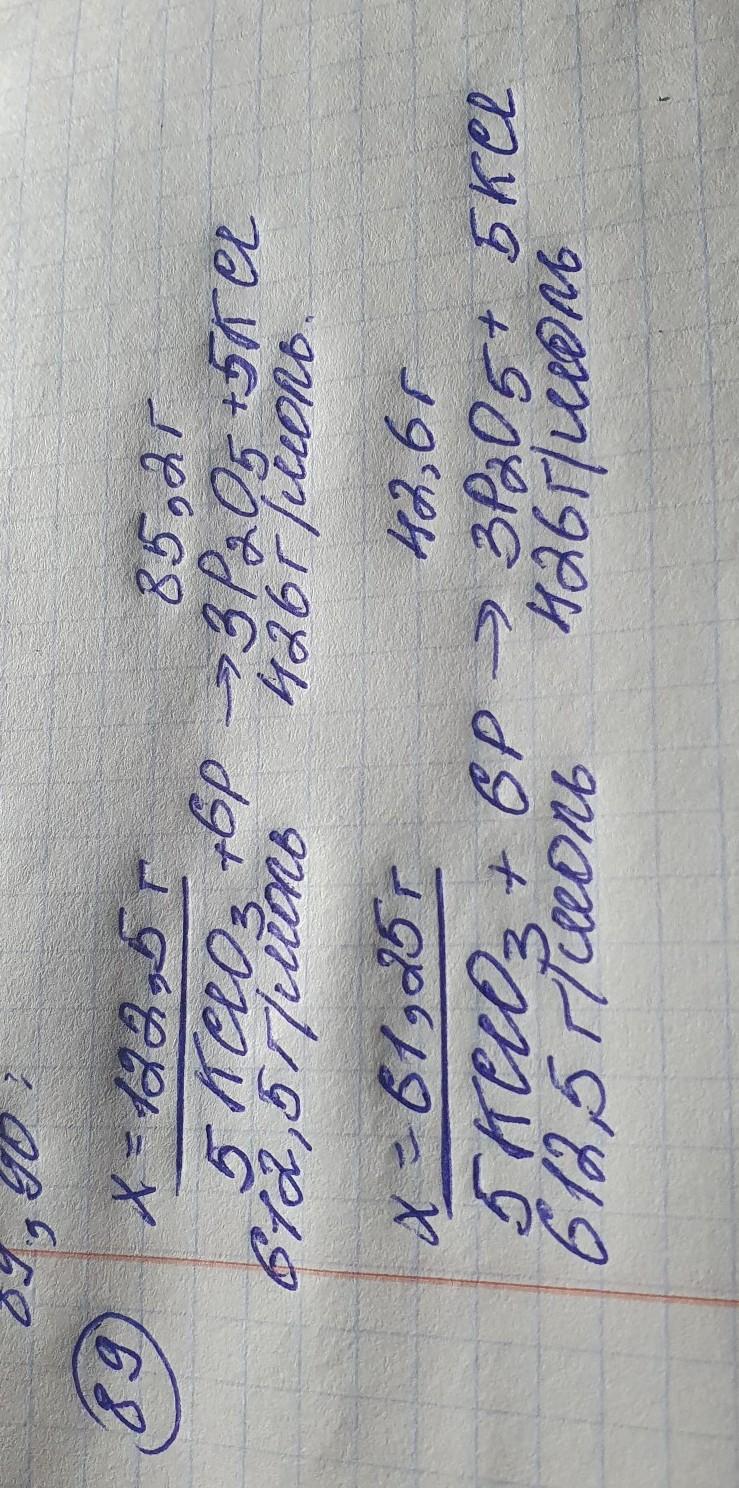 89, 90:
89
x = 122,5 г 85,2 г
5 KClO3 + 6P → 3P2O5 + 5KCl
612,5 г/моль 426 г/моль.
x = 61,25 г 42,6 г
5KClO3 + 6P → 3P2O5 + 5KCl
612,5 г/моль 426 г/моль